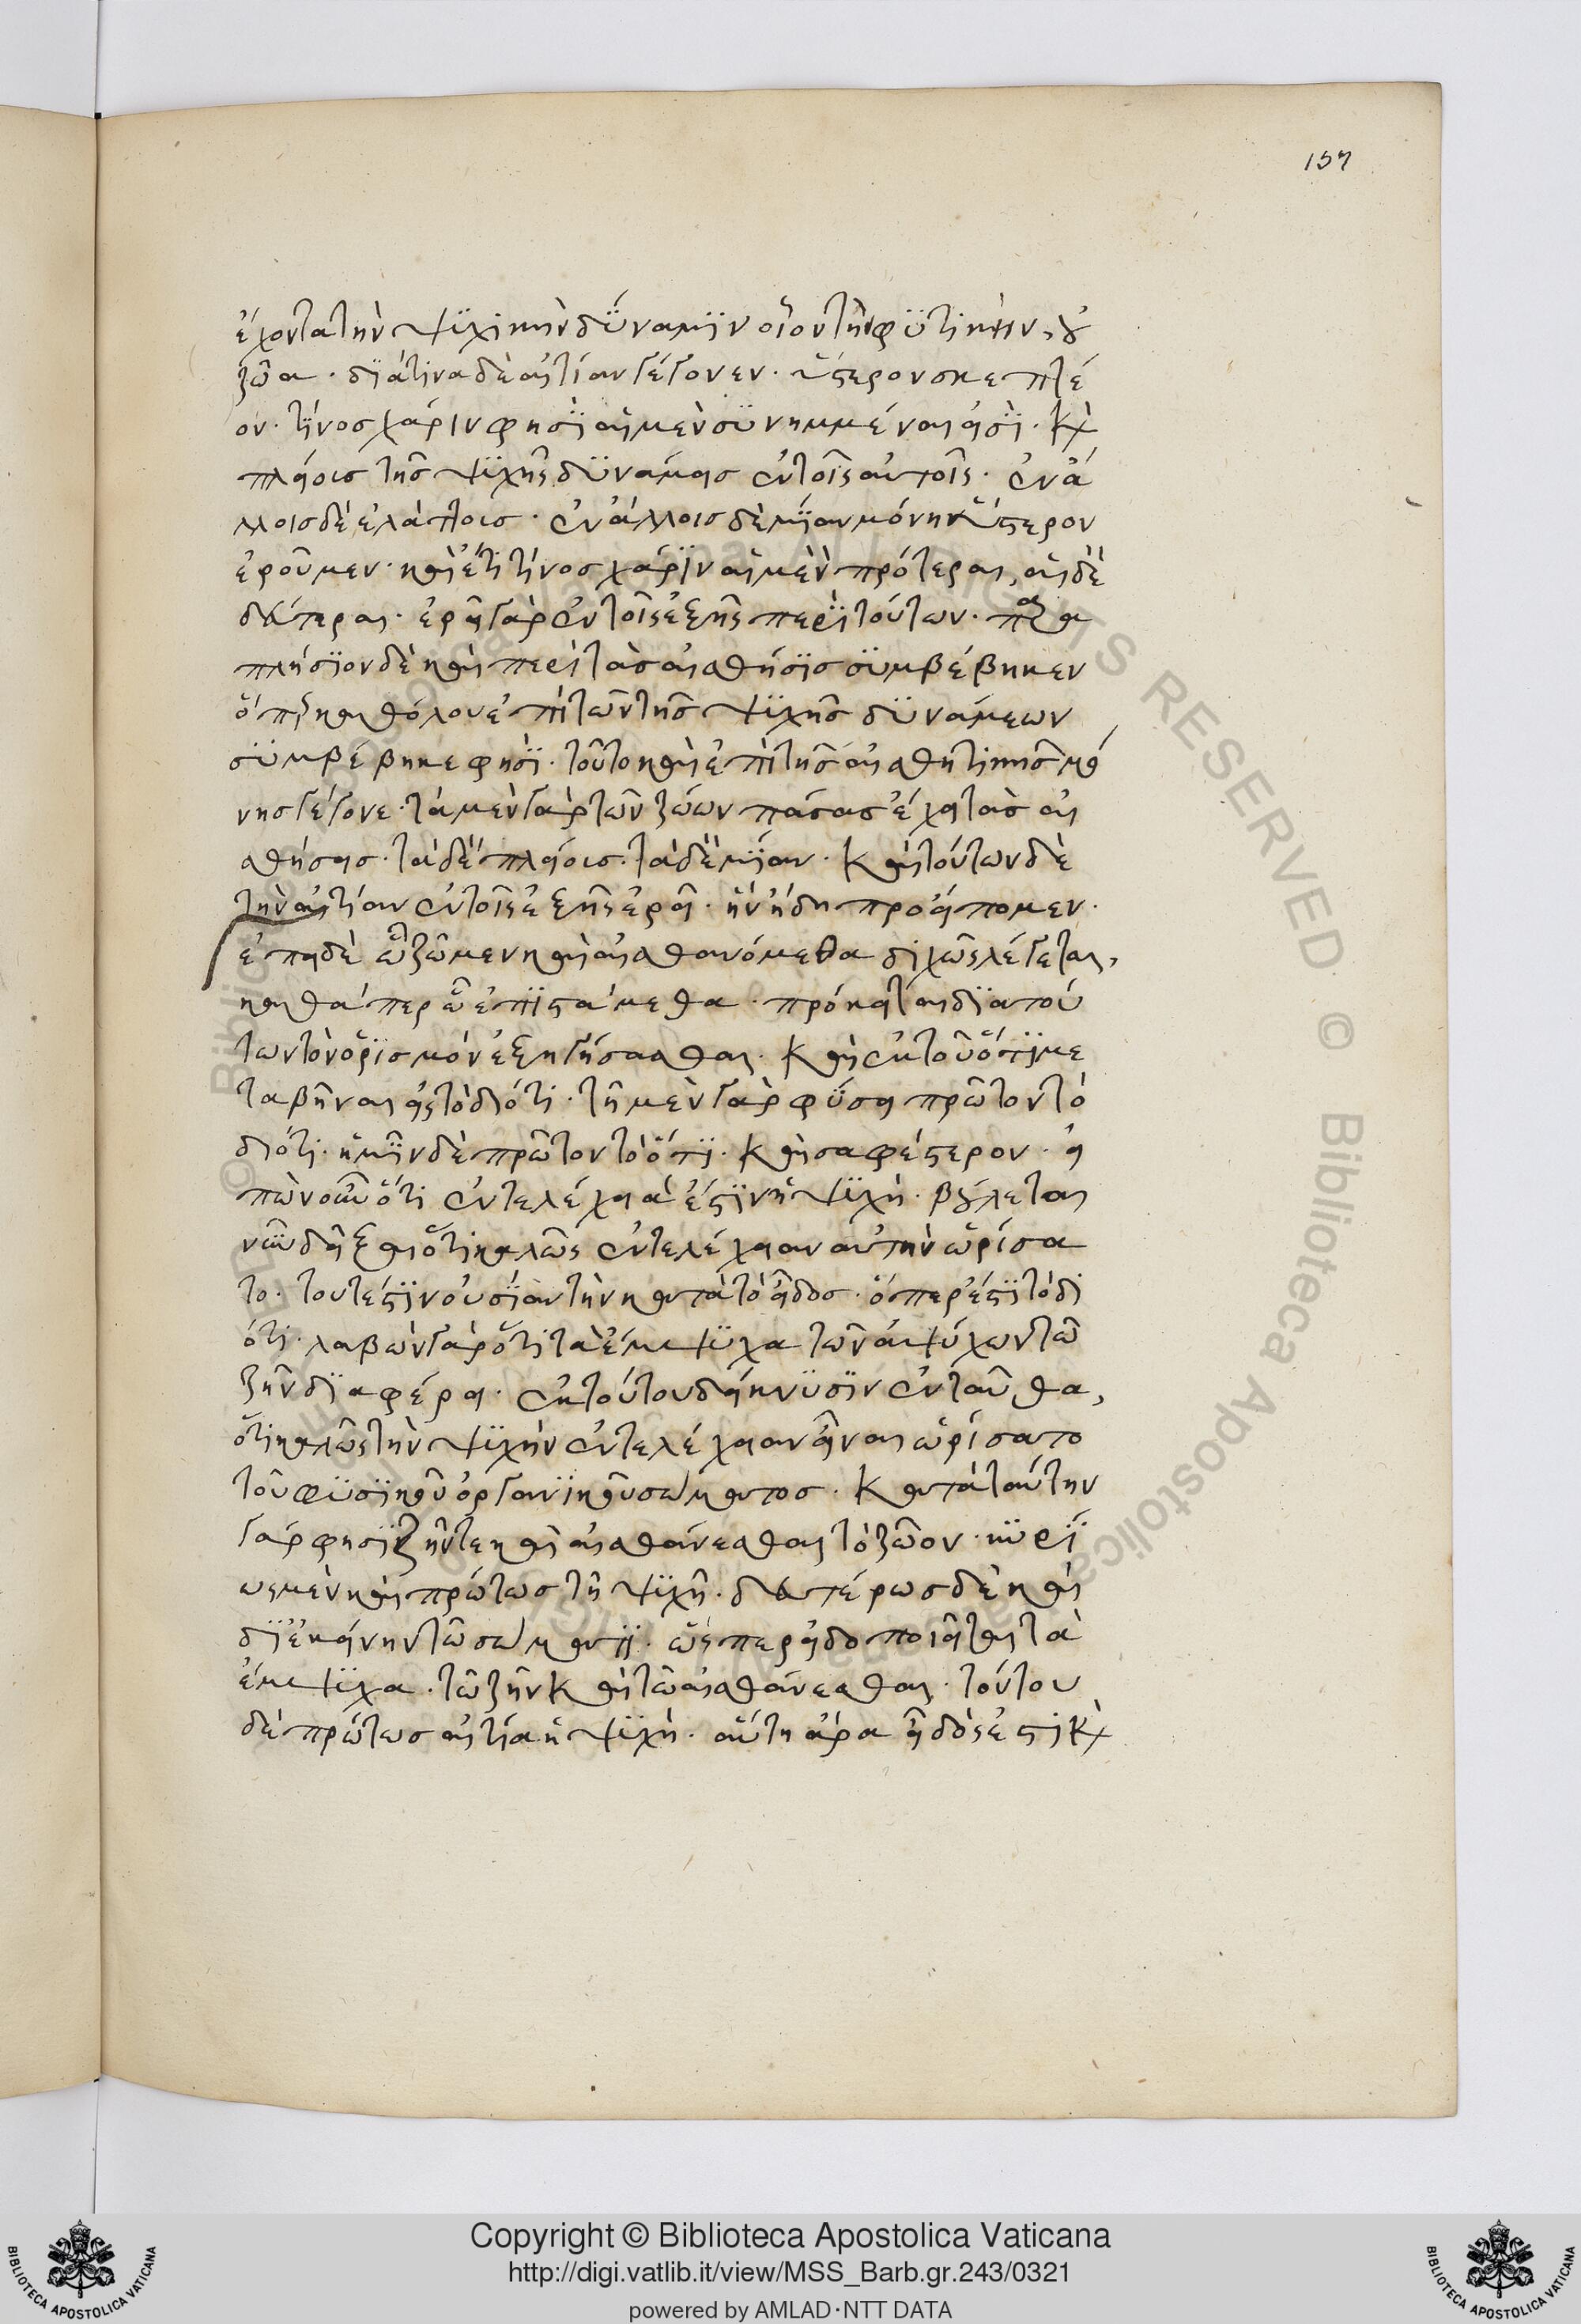 157
ἔχοντα τὴν ψυχικὴν δύναμιν οἷον τὴν φυτικὴν, οὐ
ζῶα · διὰ τίνα δὲ αἰτίαν γέγονεν · ὕστερον σκεπτέ
ον · τίνος χάριν φησὶ αἱ μὲν συνημμέναι εἰσὶ · καὶ
πλείοις τῆς ψυχῆς δυνάμεις ἐν τοῖς αὐτοῖς · ἐν ἄ
λλοις δὲ ἐλάττοις · ἐν ἄλλοις δὲ μίαν μόνην ὕστερον
ἐροῦμεν · καὶ ἔτι τίνος χάριν αἱ μὲν πρότεραι, αἱ δὲ
δεύτεραι · ἐρεῖ γὰρ ἐν τοῖς ἑξῆς περὶ τούτων · παρα
πλήσιον δὲ καὶ περὶ τὰς αἰσθήσις συμβέβηκεν
ὅπερ καθόλου ἐπὶ τῶν τῆς ψυχῆς δυνάμεων
συμβέβηκε φησὶ · τοῦτο καὶ ἐπὶ τῆς αἰσθητικῆς μό
νης γέγονε · τὰ μὲν γὰρ τῶν ζώων πάσας ἔχει τὰς αἰ
σθήσεις · τὰ δὲ πλείοις · τὰ δὲ μίαν · καὶ τούτων δὲ
τὴν αἰτίαν ἐν τοῖς ἑξῆς ἐρεῖ · ἣν ἤδη προείπομεν ·
ἐπεὶ δὲ ᾧ ζῶμεν καὶ αἰσθανόμεθα διχῶς λέγεται,
καθάπερ ᾧ ἐπιστάμεθα · πρόκειται διὰ τού
των τὸν ὁρισμὸν ἐξηγήσασθαι · καὶ ἐκ τοῦ ὅτι με
ταβῆναι εἰς τὸ διότι · τῇ μὲν γὰρ φύσει πρῶτον τὸ
διότι · ἡμῖν δὲ πρῶτον τὸ ὅτι · καὶ σαφέστερον · εἰ
πὼν οὖν ὅτι ἐντελέχειά ἐστιν ἡ ψυχὴ · βούλεται
νῦν δεῖξαι ὅτι καλῶς ἐντελέχειαν αὐτὴν ὡρίσα
το · τουτέστιν οὐσίαν τὴν κατὰ τὸ εἶδος · ὅπερ ἐστὶ τὸ δι
ότι · λαβὼν γὰρ ὅτι τὰ ἔμψυχα τῶν ἀψύχων τῶ
ζῆν διαφέρει · ἐκ τούτου δείκνυσιν ἐνταῦθα,
ὅτι καλῶς τὴν ψυχὴν ἐντελέχειαν εἶναι ὡρίσατο
τοῦ φυσικοῦ ὀργανικοῦ σώματος · κατὰ ταύτην
γάρ φησι ζῆν τε καὶ αἰσθάνεσθαι τὸ ζῶον · κυρί
ως μὲν καὶ πρώτως τῆ ψυχῆ · δευτέρως δὲ καὶ
δι᾽ ἐκείνην τῶ σώματι · ὥσπερ εἰδοποιεῖται τὰ
ἔμψυχα · τῶ ζῆν καὶ τῶ αἰσθάνεσθαι · τούτου
δὲ πρώτως αἰτία ἡ ψυχὴ · αὕτη ἄρα εἶδός ἐστι καὶ
Copyright © Biblioteca Apostolica Vaticana
http://digi.vatlib.it/view/MSS_Barb.gr.243/0321
powered by AMLAD·NTT DATA